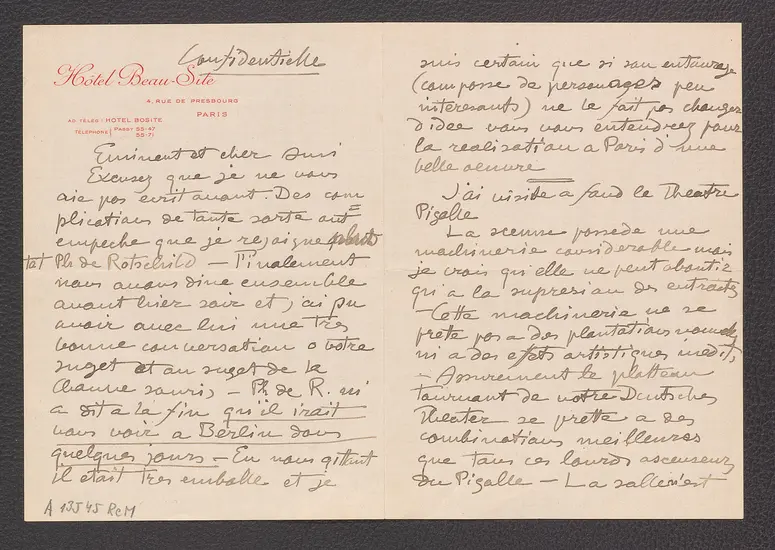 Confidentielle
Hôtel Beau-Site
4, RUE DE PRESBOURG
PARIS
AD. TÉLÉG: HOTEL BOSITE
TÉLÉPHONE PASSY 55-47
55-71
Eminent et cher ami
Excusez que je ne vous
aie pas ecrit avant. Des com
plications de toute sorte ont
empeche que je rejoigne plut
tot Ph de Rotschild – Finalement
nous avons dine ensemble
avant hier soir et j'ai pu
avoir avec lui une tres
bonne conversation a votre
suget et au suget de la
Chauve souris – Ph de R. m
a dit a la fin qu'il irait
vous voir a Berlin dans
quelques jours – En nous qittant
il etait tres emballe et je
A 13545 ReM
suis certain que si son entourage
(compose de personages peu
interesants) ne le fait pas changer
d'idee vous vous entendrez pour
la realisation a Paris d une
belle oeuvre
J'ai visite a fond le Theatre
Pigalle
La scene possede une
machinerie considerable mais
je crois qu'elle ne peut aboutir
qu'a la supresion des entractes
– Cette machinerie ne se
prete pas a des plantations nouvelles
ni a des effets artistiques inedits
– Assurement le platteau
tournant de notre Deutsches
Theater se prette a des
combinations meilleures
que tous ces lourds ascenseurs
du Pigalle – La salle n'est